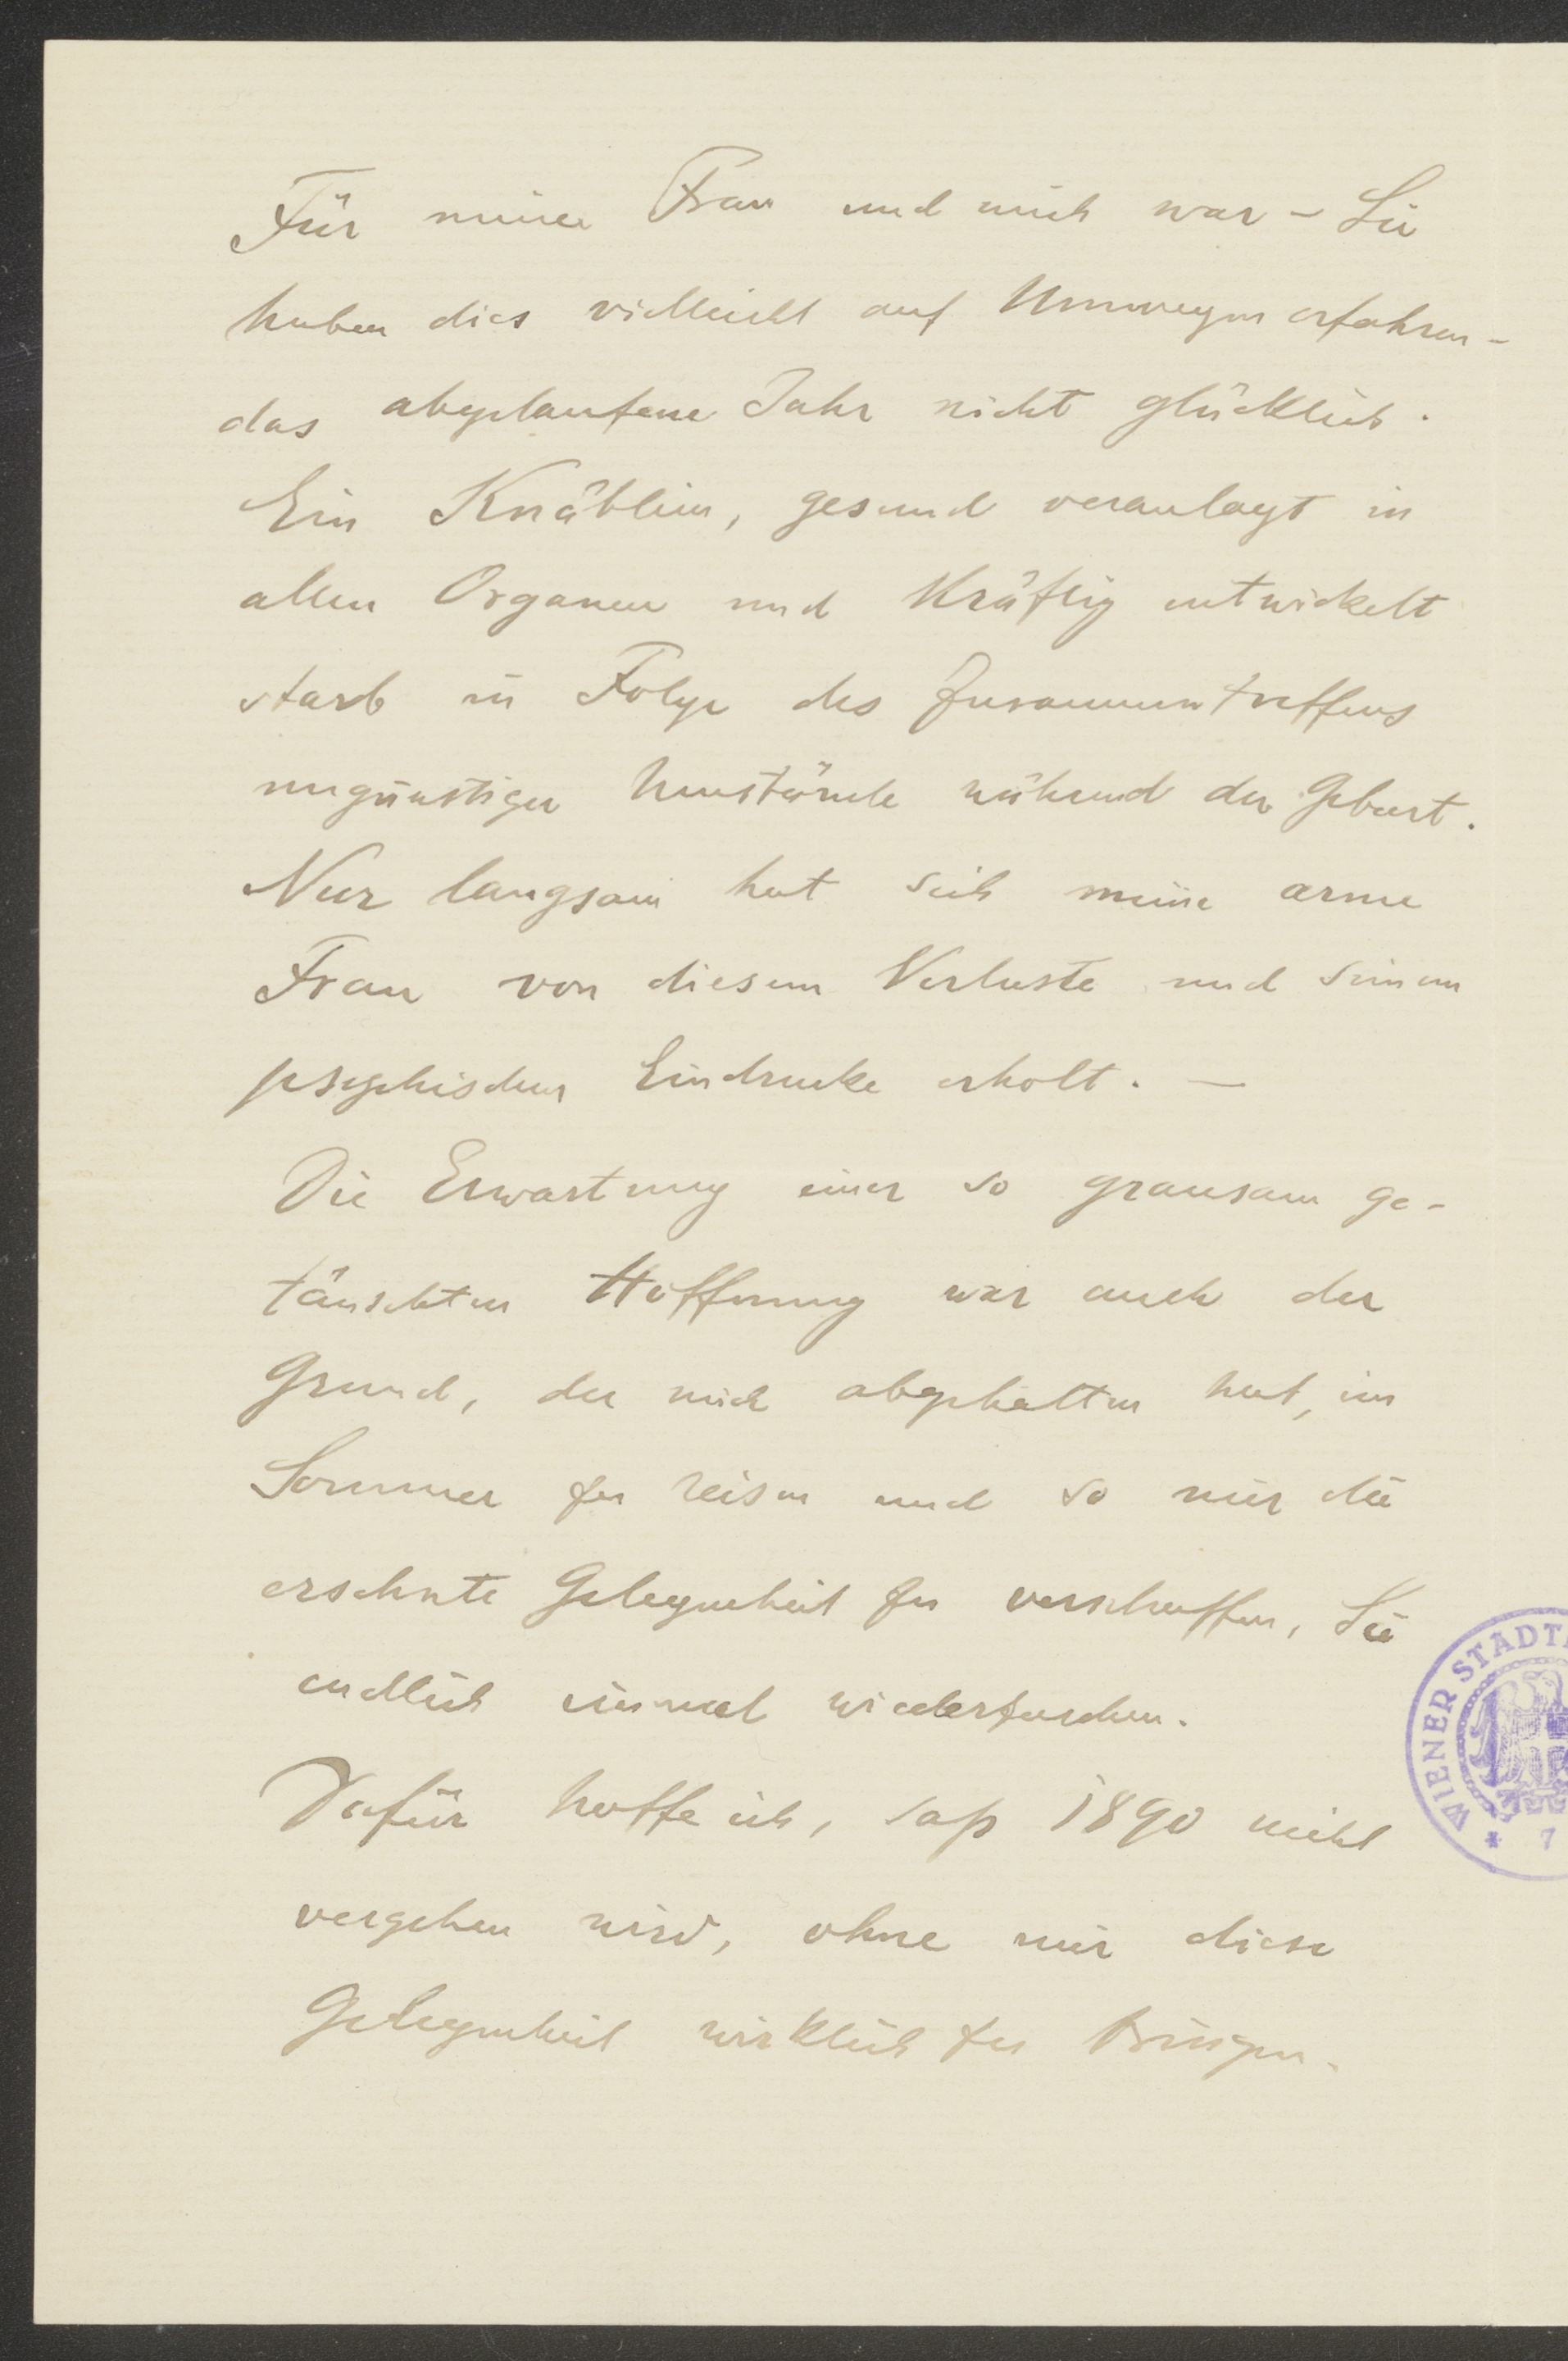 Für meine Frau und mich war – Sie
haben dies vielleicht auf Umwegen erfahren –
das abgelaufene Jahr nicht glücklich.
Ein Knäblein, gesund veranlagt in
allen Organen und kräftig entwickelt
starb in Folge des Zusammentreffens
ungünstiger Umstände während der Geburt.
Nur langsam hat sich meine arme
Frau von diesem Verluste und seinem
psychischen Eindrucke erholt. —
Die Erwartung einer so grausam ge-
täuschten Hoffnung war auch der
Grund, der mich abgehalten hat, im
Sommer zu reisen und so mir die
ersehnte Gelegenheit zu verschaffen, Sie
endlich einmal wiederzusehen.
Dafür hoffe ich, daß 1890 nicht
vergehen wird, ohne mir diese
Gelegenheit wirklich zu bringen.
WIENER STADT
* 7